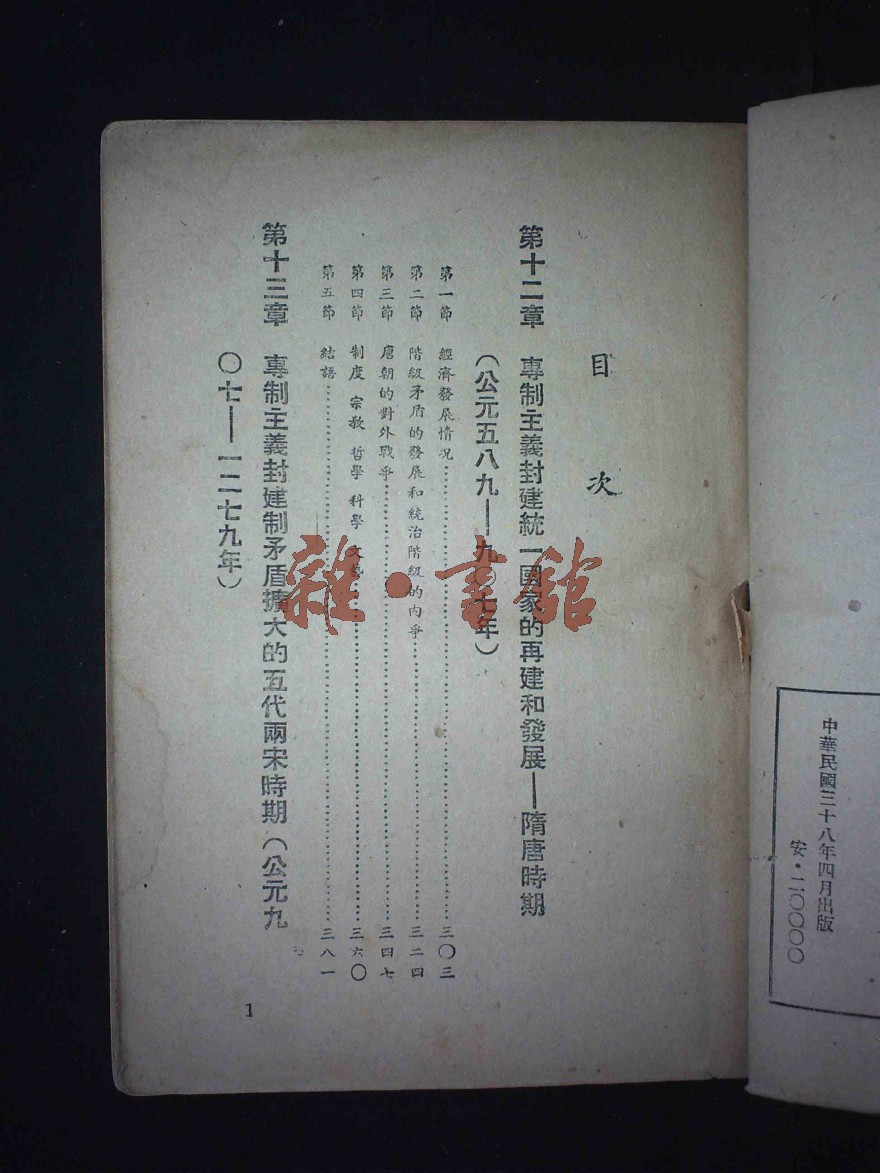 中華民國三十八年四月出版
安·二〇〇〇〇
目次
第十二章 專制主義封建統一國家的再建和發展—隋唐時期
(公元五八九—九〇七年)
第一節 經濟發展情况……三〇三
第二節 階級矛盾的發展和統治階級的內爭……三二四
第三節 唐朝的對外戰爭……三四七
第四節 制度 宗教 哲學 科學 文藝……三六〇
第五節 結語……三八一
第十三章 專制主義封建制矛盾擴大的五代兩宋時期(公元九
〇七—一二七九年)
1
雜·書館